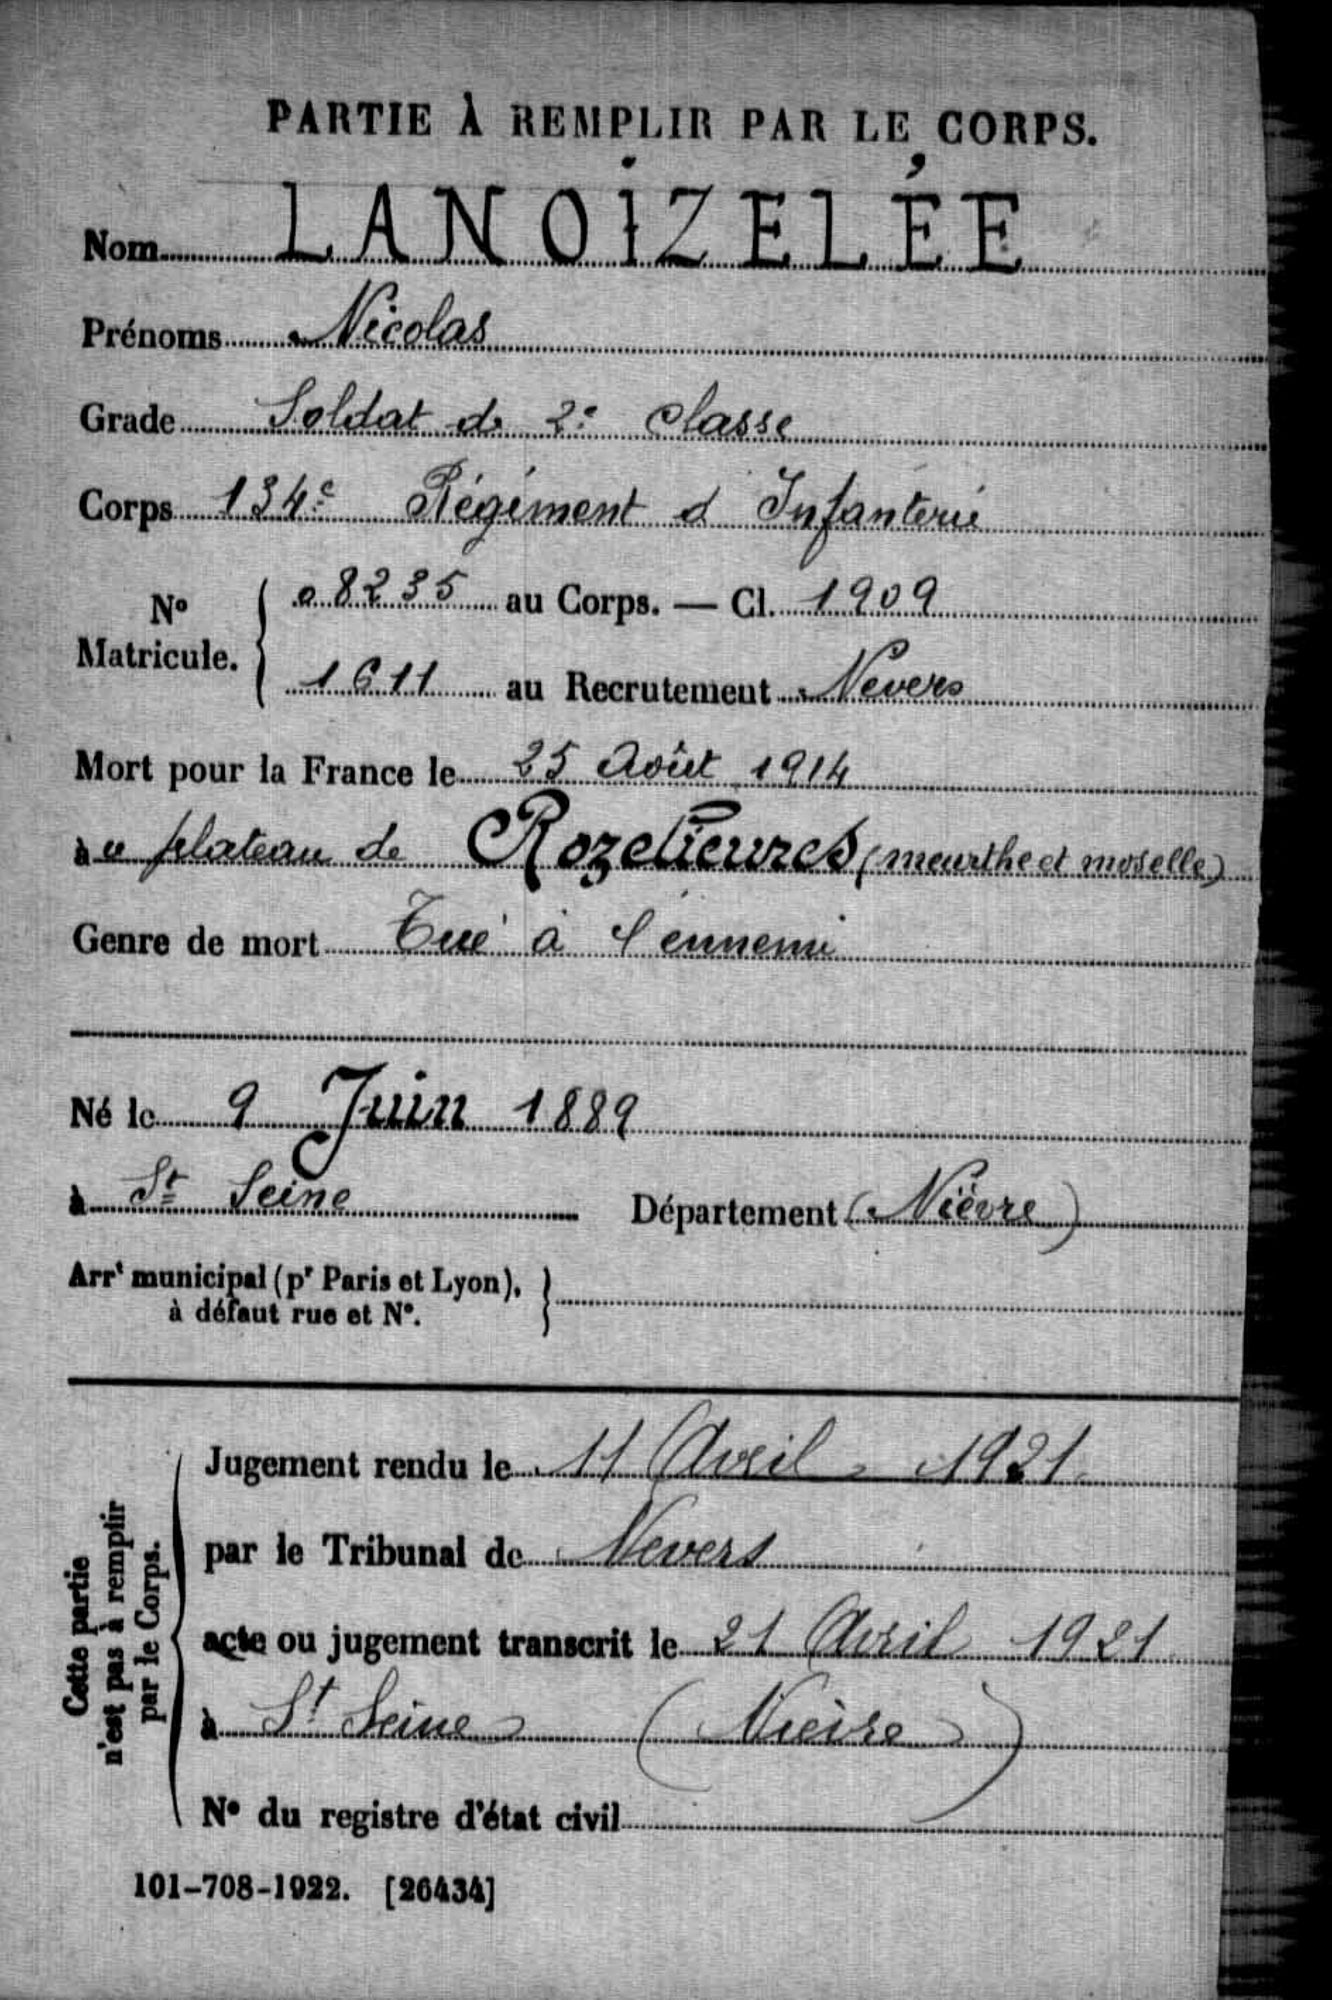 PARTIE À REMPLIR PAR LE CORPS.
Nom LANOIZELÉE
Prénoms Nicolas
Grade Soldat de 2e classe
Corps 134e Régiment d'Infanterie
No Matricule. { 08235 au Corps. — Cl. 1909
1611 au Recrutement Nevers
Mort pour la France le 25 Août 1914
àu plateau de Rozelieures (meurthe et moselle)
Genre de mort Tué à l'ennemi
Né le 9 Juin 1889
à St Seine Département (Nièvre)
Arrt municipal (pr Paris et Lyon), }
à défaut rue et No.
Cette partie
n'est pas à remplir
par le Corps.
Jugement rendu le 11 Avril 1921
par le Tribunal de Nevers
acte ou jugement transcrit le 21 Avril 1921
à St Seine (Nièvre)
No du registre d'état civil
101-708-1922. [26434]